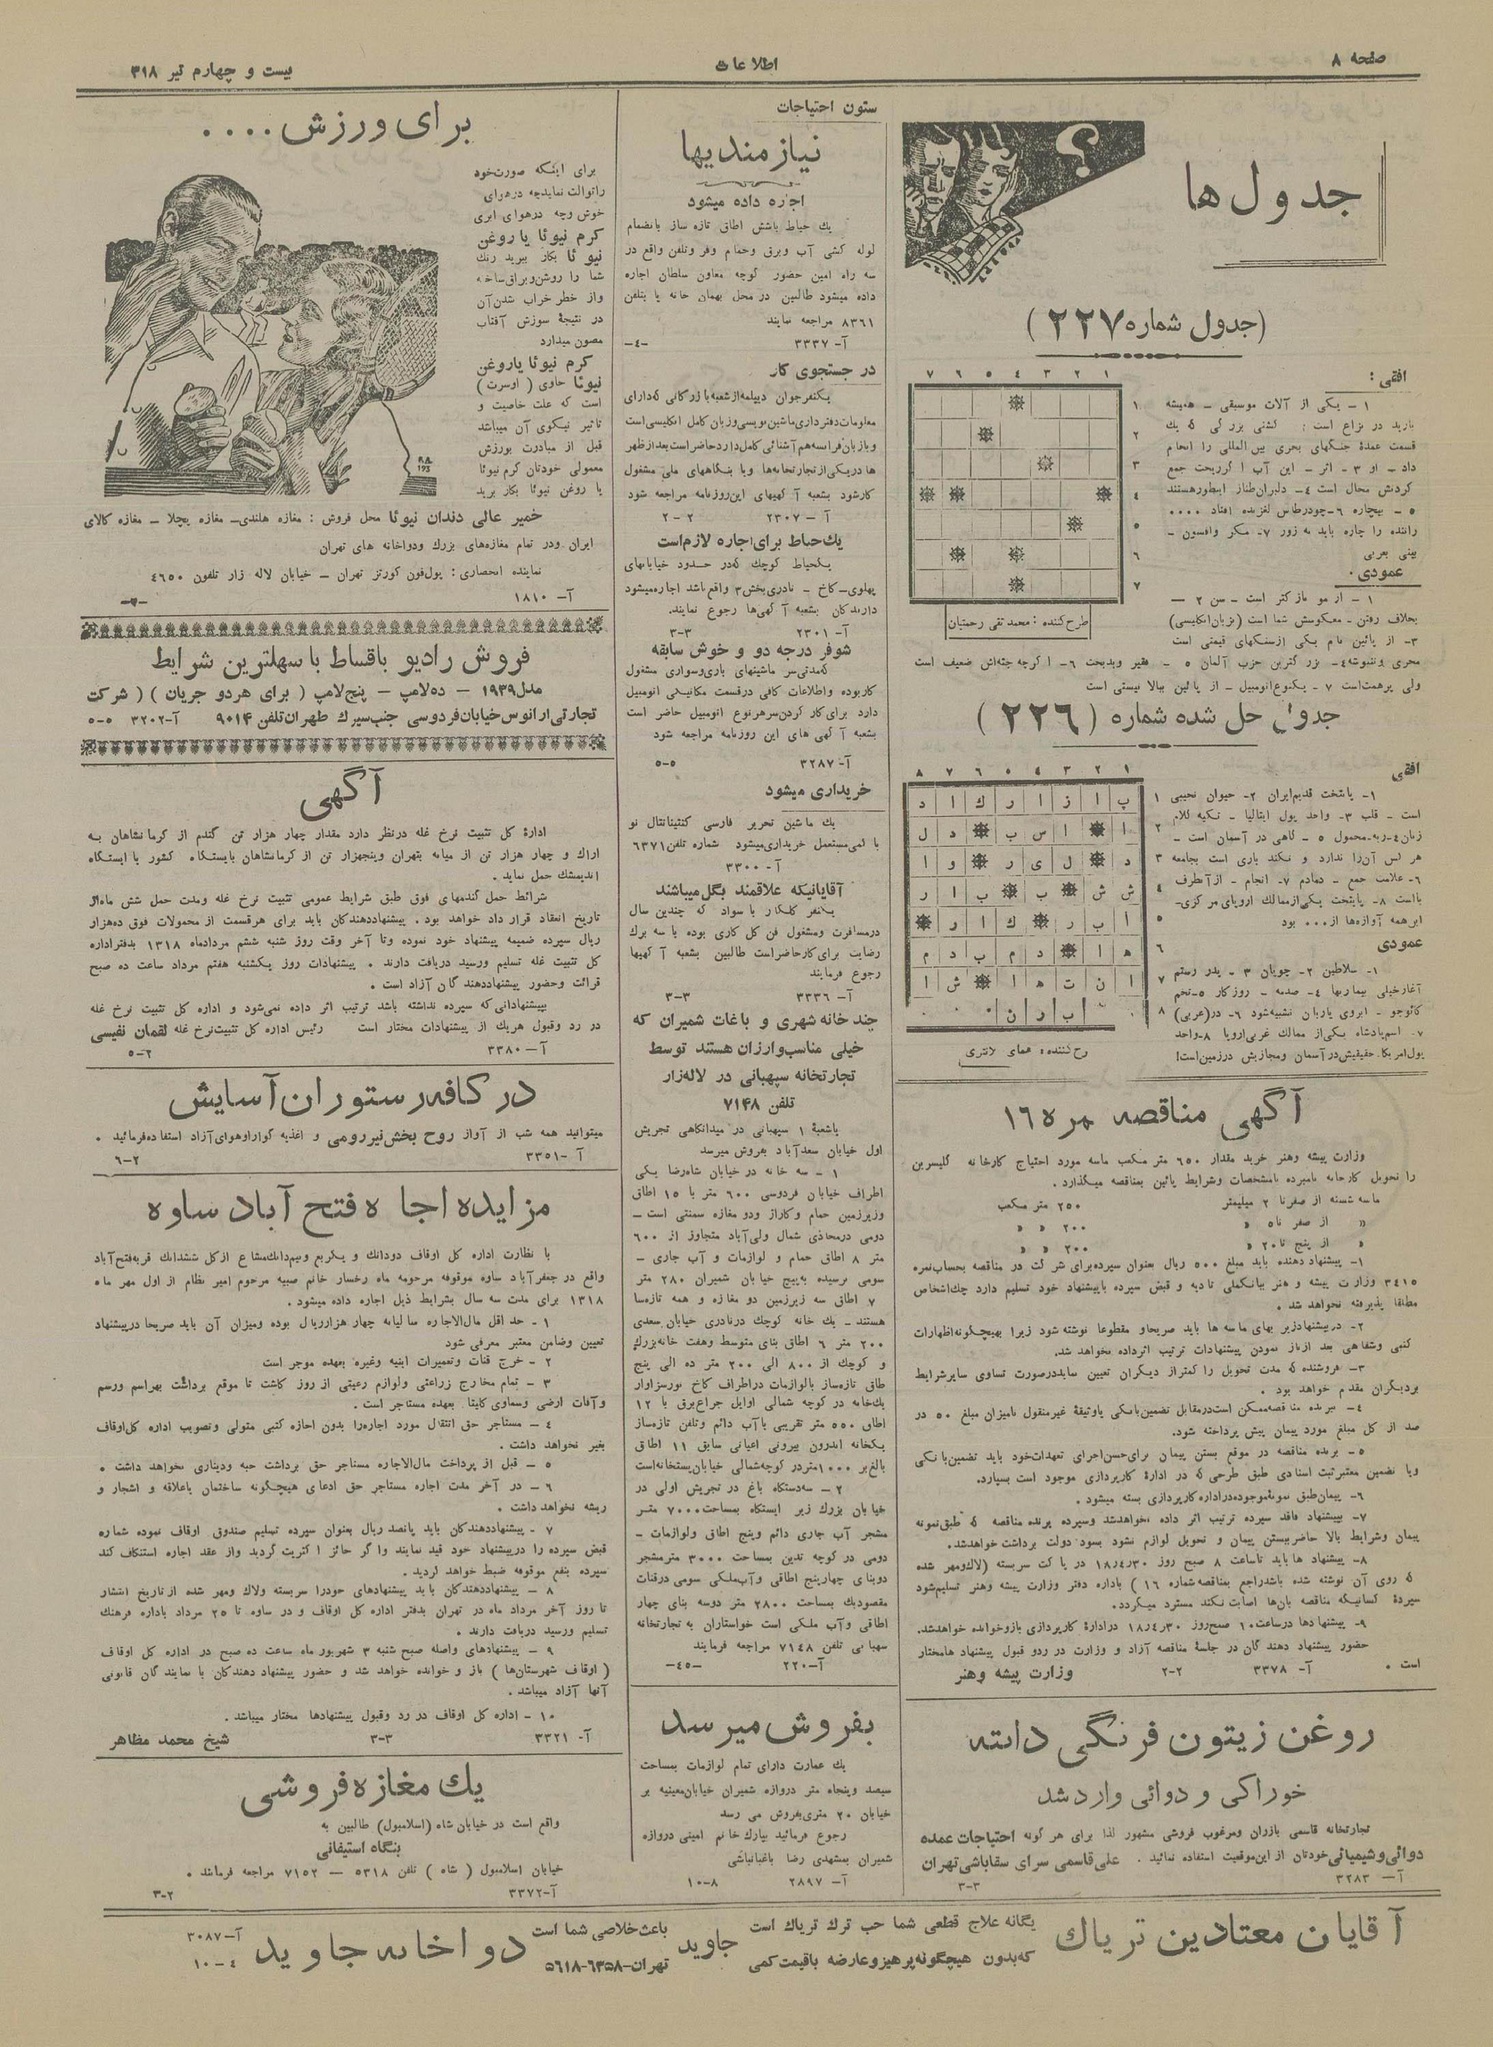 صفحه ۸
اطلاعات
بیست و چهارم تیر ۳۱۸
جدول ها
(جدول شماره ۲۲۷)
افقی :
۱ – یکی از آلات موسیقی – همیشه
باربد در نزاع است : کشتی بزرگی که یک
قسمت عمدهٔ جنگهای بحری بین‌المللی را انجام
داد – او ۳ – اثر – این آب اگر ریخت جمع
کردنش محال است ۴ – دلبران طناز اینطور هستند
۵ – بیچاره ۶ – چو در طاس لغزنده افتاد ....
راننده را چاره باید نه زور ۷ – مکر و افسون –
بینی بعربی
عمودی :
۱ – از مو نازکتر است – سن ۲ –
بخلاف رفتن – معکوسش شما است (بزبان انگلیسی)
۳ – از پائین نام یکی از سنگهای قیمتی است
۱ ۲ ۳ ۴ ۵ ۶ ۷
۱
۲
۳
۴
۵
۶
۷
طرح کننده : محمد تقی رحمتیان
ولی پرهمت است ۷ – یکنوع اتومبیل – از پائین ببالا نیستی است
جدول حل شده شماره ( ۲۲۶ )
افقی
۱ – پایتخت قدیم ایران ۲ – حیوان نجیبی
است – قلب ۳ – واحد پول ایتالیا – تکیه کلام
هر کس آنرا ندارد و نکند باری است بجامعه
۶ – علامت جمع – دمادم ۷ – انجام – از آنطرف
بااست ۸ – پایتخت یکی از ممالک اروپای مرکزی –
این همه آوازه‌ها از ... بود
عمودی
۱ – سلاطین ۲ – چوپان ۳ – پدر رستم
آغاز خیلی بیماریها ۴ – صدمه – روزگار ۵ – تخم
۷ – اسم پادشاه یکی از ممالک غربی اروپا ۸ – واحد
پول امریکا. حقیقیش در آسمان و مجازیش در زمین است !
۱ ۲ ۳ ۴ ۵ ۶ ۷ ۸
پ ا ز ا ر گ ا د
ا ا س ب د ل
د ل ی ر و ا
ش ش ب ب ا ر
ا ب ر ک ا ر
ه ا د م ب د م
ا ن ت ه ا ش ا
ب ر ن
رح کننده : همای لانتری
آگهی مناقصه نمره ۱۶
وزارت پیشه و هنر خرید مقدار ۶۵۰ متر مکعب ماسه مورد احتیاج کارخانه گلیسرین
را تحویل کارخانه نامبرده بامشخصات و شرایط پائین بمناقصه میگذارد .
ماسه شسته از صفر تا ۲ میلیمتر ۲۵۰ متر مکعب
« از صفر تا ۵ « ۲۰۰ « «
« از پنج تا ۲۰ « ۲۰۰ « «
۱ – پیشنهاد دهنده باید مبلغ ۵۰۰ ریال بعنوان سپرده برای شرکت در مناقصه بحساب نمره
۳۴۱۵ وزارت پیشه و هنر ببانک ملی تادیه و قبض سپرده با پیشنهاد خود تسلیم دارد چک اشخاص
مطلقا پذیرفته نخواهد شد .
۲ – در پیشنهاد زیر بهای ماسه ها باید صریح او مقطوعا نوشته شود زیرا بهیچگونه اظهارات
کتبی و شفاهی بعد از باز نمودن پیشنهادات ترتیب اثر داده نخواهد شد .
۳ – فروشنده که مدت تحویل را کمتر از دیگران تعیین نماید در صورت تساوی سایر شرایط
بر دیگران مقدم خواهد بود .
۴ – برنده مناقصه ممکن است در مقابل تضمین بانکی یا وثیقهٔ غیر منقول تا میزان مبلغ ۵۰ در
صد از کل مبلغ مورد پیمان پیش پرداخته شود .
۵ – برنده مناقصه در موقع بستن پیمان برای حسن اجرای تعهدات خود باید تضمین بانکی
ویا تضمین معتبر ثبت اسنادی طبق طرحی که در ادارهٔ کارپردازی موجود است بسپارد .
۶ – پیمان طبق نمونهٔ موجوده در اداره کارپردازی بسته میشود .
۷ – پیشنهاد فاقد سپرده ترتیب اثر داده نخواهد شد و سپرده برنده مناقصه که طبق نمونه
پیمان و شرایط بالا حاضر ببستن پیمان و تحویل لوازم نشود بسود دولت برداشت خواهد شد .
۸ – پیشنهاد ها باید تا ساعت ۸ صبح روز ۱۸ر۴ر۳۰ در پاکت سربسته (لاک و مهر شده
که روی آن نوشته شده باشد راجع بمناقصه شماره ۱۶ ) باداره دفتر وزارت پیشه و هنر تسلیم شود
سپردهٔ کسانیکه مناقصه بآن‌ها اصابت نکند مسترد میگردد .
۹ – پیشنهادها در ساعت ۱۰ صبح روز ۱۸ر۴ر۳۰ در ادارهٔ کارپردازی باز و خوانده خواهد شد .
حضور پیشنهاد دهندگان در جلسهٔ مناقصه آزاد و وزارت در رد و قبول پیشنهاد ها مختار
است . آ – ۳۳۷۸ ۲–۲ وزارت پیشه و هنر
روغن زیتون فرنگی دانته
خوراکی و دوائی وارد شد
تجارتخانه قاسمی بازران ومرغوب فروشی مشهور لذا برای هر گونه احتیاجات عمده
دوائی و شیمیائی خودتان از این موقعیت استفاده نمائید . علی قاسمی سرای سقاباشی تهران
آ – ۳۲۸۳ ۳–۳
ستون احتیاجات
نیازمندیها
اجاره داده میشود
یک حیاط باشش اطاق تازه ساز بانضمام
لوله کشی آب و برق و حمام وفر و تلفن واقع در
سه راه امین حضور کوچه معاون سلطان اجاره
داده میشود طالبین در محل بهمان خانه یا بتلفن
۸۳۶۱ مراجعه نمایند
آ – ۳۳۳۷ –۴–
در جستجوی کار
یکنفر جوان دیپلمه از شعبه بازرگانی که دارای
معلومات دفترداری ماشین نویسی و زبان کامل انگلیسی است
و با زبان فرانسه هم آشنائی کامل دارد حاضر است بعد از ظهر
ها در یکی از تجارتخانه‌ها ویا بنگاههای ملی مشغول
کار شود بشعبه آگهیهای این روزنامه مراجعه شود
آ – ۲۳۰۷ ۲–۲
یک حیاط برای اجاره لازم است
یکحیاط کوچک که در حدود خیابانهای
پهلوی – کاخ – نادری بخش ۳ واقع باشد اجاره میشود
دارندگان بشعبه آگهی‌ها رجوع نمایند .
آ – ۲۳۰۱ ۳–۳
شوفر درجه دو و خوش سابقه
که مدتی سر ماشینهای باری و سواری مشغول
کار بوده و اطلاعات کافی در قسمت مکانیکی اتومبیل
دارد برای کار کردن سر هر نوع اتومبیل حاضر است
بشعبه آگهی های این روزنامه مراجعه شود
آ – ۳۲۸۷ ۵–۵
خریداری میشود
یک ماشین تحریر فارسی کنتیناتنال نو
یا کمی مستعمل خریداری میشود شماره تلفن ۶۳۷۱
آ – ۳۳۰۰
آقایانیکه علاقمند بگل میباشند
یکنفر گلکار با سواد که چندین سال
در مسافرت و مشغول فن گل کاری بوده با سه برگ
رضایت برای کار حاضر است طالبین بشعبه آگهیها
رجوع فرمایند
آ – ۳۳۳۶ ۳–۳
چند خانه شهری و باغات شمیران که
خیلی مناسب و ارزان هستند توسط
تجارتخانه سپهبانی در لاله‌زار
تلفن ۷۱۴۸
یاشعبهٔ ۱ سپهبانی در میدانگاهی تجریش
اول خیابان سعدآباد بفروش میرسد
۱ – سه خانه در خیابان شاهرضا یکی
اطراف خیابان فردوسی ۶۰۰ متر با ۱۵ اطاق
و زیرزمین حمام و گاراژ و دو مغازه سمنتی است –
دومی در محاذی شمال ولی‌آباد متجاوز از ۶۰۰
متر ۸ اطاق حمام و لوازمات و آب جاری –
سومی نرسیده به پیچ خیابان شمیران ۲۸۰ متر
۷ اطاق سه زیرزمین دو مغازه و همه تازه‌سا
هستند – یک خانه کوچک در نادری خیابان سعدی
۲۰۰ متر ۶ اطاق بنای متوسط و هفت خانه بزرگ
و کوچک از ۸۰۰ الی ۲۰۰ متر ده الی پنج
طاق تازه‌ساز بالوازمات در اطراف کاخ نورسزاوار
یکخانه در کوچه شمالی اوایل چراغ برق با ۱۲
اطاق ۵۵۰ متر تقریبی با آب دائم و تلفن تازه‌ساز
یکخانه اندرون بیرونی اعیانی سابق ۱۱ اطاق
بالغ بر ۱۰۰۰ متر در کوچه شمالی خیابان پستخانه است
۲ – سه دستگاه باغ در تجریش اولی در
خیابان بزرگ زیر ایستگاه بمساحت ۷۰۰۰ متر
مشجر آب جاری دائم و پنج اطاق و لوازمات –
دومی در کوچه تدین بمساحت ۳۰۰۰ متر مشجر
دو بنای چهار پنج اطاقی و آب ملکی سومی در قنات
مقصودبک بمساحت ۲۸۰۰ متر دوسه بنای چهار
اطاقی و آب ملکی است خواستاران به تجارتخانه
سپهبانی تلفن ۷۱۴۸ مراجعه فرمایند
آ – ۲۲۰ –۴۵–
بفروش میرسد
یک عمارت دارای تمام لوازمات بمساحت
سیصد و پنجاه متر دروازه شمیران خیابان معینیه بر
خیابان ۲۰ متری بفروش می رسد
رجوع فرمائید بپارک خانم امینی دروازه
شمیران بمشهدی رضا باغبانباشی
آ – ۲۸۹۷ ۸–۱۰
برای ورزش ....
برای اینکه صورت خود
را توالت نمایدچه در هوای
خوش و چه در هوای ابری
کرم نیوئا یا روغن
نیوئا بکار ببرید رنگ
شما را روشن و براق ساخته
و از خطر خراب شدن آن
در نتیجهٔ سوزش آفتاب
مصون میدارد
کرم نیوئا یا روغن
نیوئا حاوی ( اوسرت )
است که علت خاصیت و
تاثیر نیکوی آن میباشد
قبل از مبادرت بورزش
معمولی خودتان کرم نیوئا
یا روغن نیوئا بکار برید
خمیر عالی دندان نیوئا محل فروش : مغازه هلندی – مغازه بچلا – مغازه کالای
ایران و در تمام مغازه‌های بزرگ و دواخانه های تهران
نماینده انحصاری : یول فون کورتز تهران – خیابان لاله زار تلفون ۴۶۵۰
آ – ۱۸۱۰
فروش رادیو باقساط با سهلترین شرایط
مدل ۱۹۳۹ – ده لامپ – پنج لامپ ( برای هر دو جریان ) ( شرکت
تجارتی ارانوس خیابان فردوسی جنب سیرک طهران تلفن ۹۰۱۴ آ–۳۲۰۲ ۵–۵
آگهی
ادارهٔ کل تثبیت نرخ غله در نظر دارد مقدار چهار هزار تن گندم از کرمانشاهان به
اراک و چهار هزار تن از میانه بتهران و پنجهزار تن از کرمانشاهان بایستگاه کشور یا ایستگاه
اندیمشک حمل نماید .
شرائط حمل گندمهای فوق طبق شرایط عمومی تثبیت نرخ غله و مدت حمل شش ماه از
تاریخ انعقاد قرار داد خواهد بود . پیشنهاددهندگان باید برای هر قسمت از محمولات فوق ده هزار
ریال سپرده ضمیمه پیشنهاد خود نموده و تا آخر وقت روز شنبه ششم مرداد ماه ۱۳۱۸ بدفتر اداره
کل تثبیت غله تسلیم و رسید دریافت دارند . پیشنهادات روز یکشنبه هفتم مرداد ساعت ده صبح
قرائت و حضور پیشنهاددهندگان آزاد است .
بپیشنهاداتی که سپرده نداشته باشد ترتیب اثر داده نمی‌شود و اداره کل تثبیت نرخ غله
در رد و قبول هر یک از پیشنهادات مختار است رئیس اداره کل تثبیت نرخ غله لقمان نفیسی
آ – ۳۳۸۰ ۲–۵
در کافه رستوران آسایش
میتوانید همه شب از آواز روح بخش نیررومی و اغذیه گوارا و هوای آزاد استفاده فرمائید .
آ – ۳۳۵۱ ۲–۶
مزایده اجاره فتح آباد ساوه
با نظارت اداره کل اوقاف دودانگ و یکربع و نیم دانگ مشاع از کل ششدانگ قریه فتح آباد
واقع در جعفر آباد ساوه موقوفه مرحومه ماه رخسار خانم صبیه مرحوم امیر نظام از اول مهر ماه
۱۳۱۸ برای مدت سه سال بشرایط ذیل اجاره داده میشود .
۱ – حد اقل مال‌الاجاره سالیانه چهار هزار ریال بوده و میزان آن باید صریحا در پیشنهاد
تعیین و ضامن معتبر معرفی شود
۲ – خرج قنات و تعمیرات ابنیه و غیره بعهده موجر است
۳ – تمام مخارج زراعتی و لوازم رعیتی از روز کاشت تا موقع برداشت بهر اسم و رسم
و آفات ارضی و سماوی کاینا بعهده مستاجر است .
۴ – مستاجر حق انتقال مورد اجاره‌را بدون اجازه کتبی متولی و تصویب اداره کل اوقاف
بغیر نخواهد داشت .
۵ – قبل از پرداخت مال‌الاجاره مستاجر حق برداشت حبه و دیناری نخواهد داشت .
۶ – در آخر مدت اجاره مستاجر حق ادعای هیچگونه ساختمان یا علاقه و اشجار و
ریشه نخواهد داشت .
۷ – پیشنهاددهندگان باید پانصد ریال بعنوان سپرده تسلیم صندوق اوقاف نموده شماره
قبض سپرده را در پیشنهاد خود قید نمایند و اگر حائز اکثریت گردید و از عقد اجاره استنکاف کند
سپرده بنفع موقوفه ضبط خواهد گردید .
۸ – پیشنهاددهندگان باید پیشنهادهای خود را سربسته ولاک و مهر شده از تاریخ انتشار
تا روز آخر مرداد ماه در تهران بدفتر اداره کل اوقاف و در ساوه تا ۲۵ مرداد باداره فرهنگ
تسلیم و رسید دریافت دارند .
۹ – پیشنهادهای واصله صبح شنبه ۳ شهریور ماه ساعت ده صبح در اداره کل اوقاف
( اوقاف شهرستان‌ها ) باز و خوانده خواهد شد و حضور پیشنهاد دهندگان با نمایندگان قانونی
آنها آزاد میباشد .
۱۰ – اداره کل اوقاف در رد و قبول پیشنهادها مختار میباشد .
آ – ۳۳۲۱ ۳–۳ شیخ محمد مظاهر
یک مغازه فروشی
واقع است در خیابان شاه (اسلامبول) طالبین به
بنگاه استیفانی
خیابان اسلامبول ( شاه ) تلفن ۵۳۱۸ – ۷۱۵۲ مراجعه فرمایند .
آ–۳۳۷۲ ۲–۳
آقایان معتادین تریاک
یگانه علاج قطعی شما حب ترک تریاک است
که بدون هیچگونه پرهیز و عارضه با قیمت کمی
جاوید
باعث خلاصی شما است
تهران–۶۳۵۸–۵۶۱۸
دواخانه جاوید
آ–۳۰۸۷
۴–۱۰